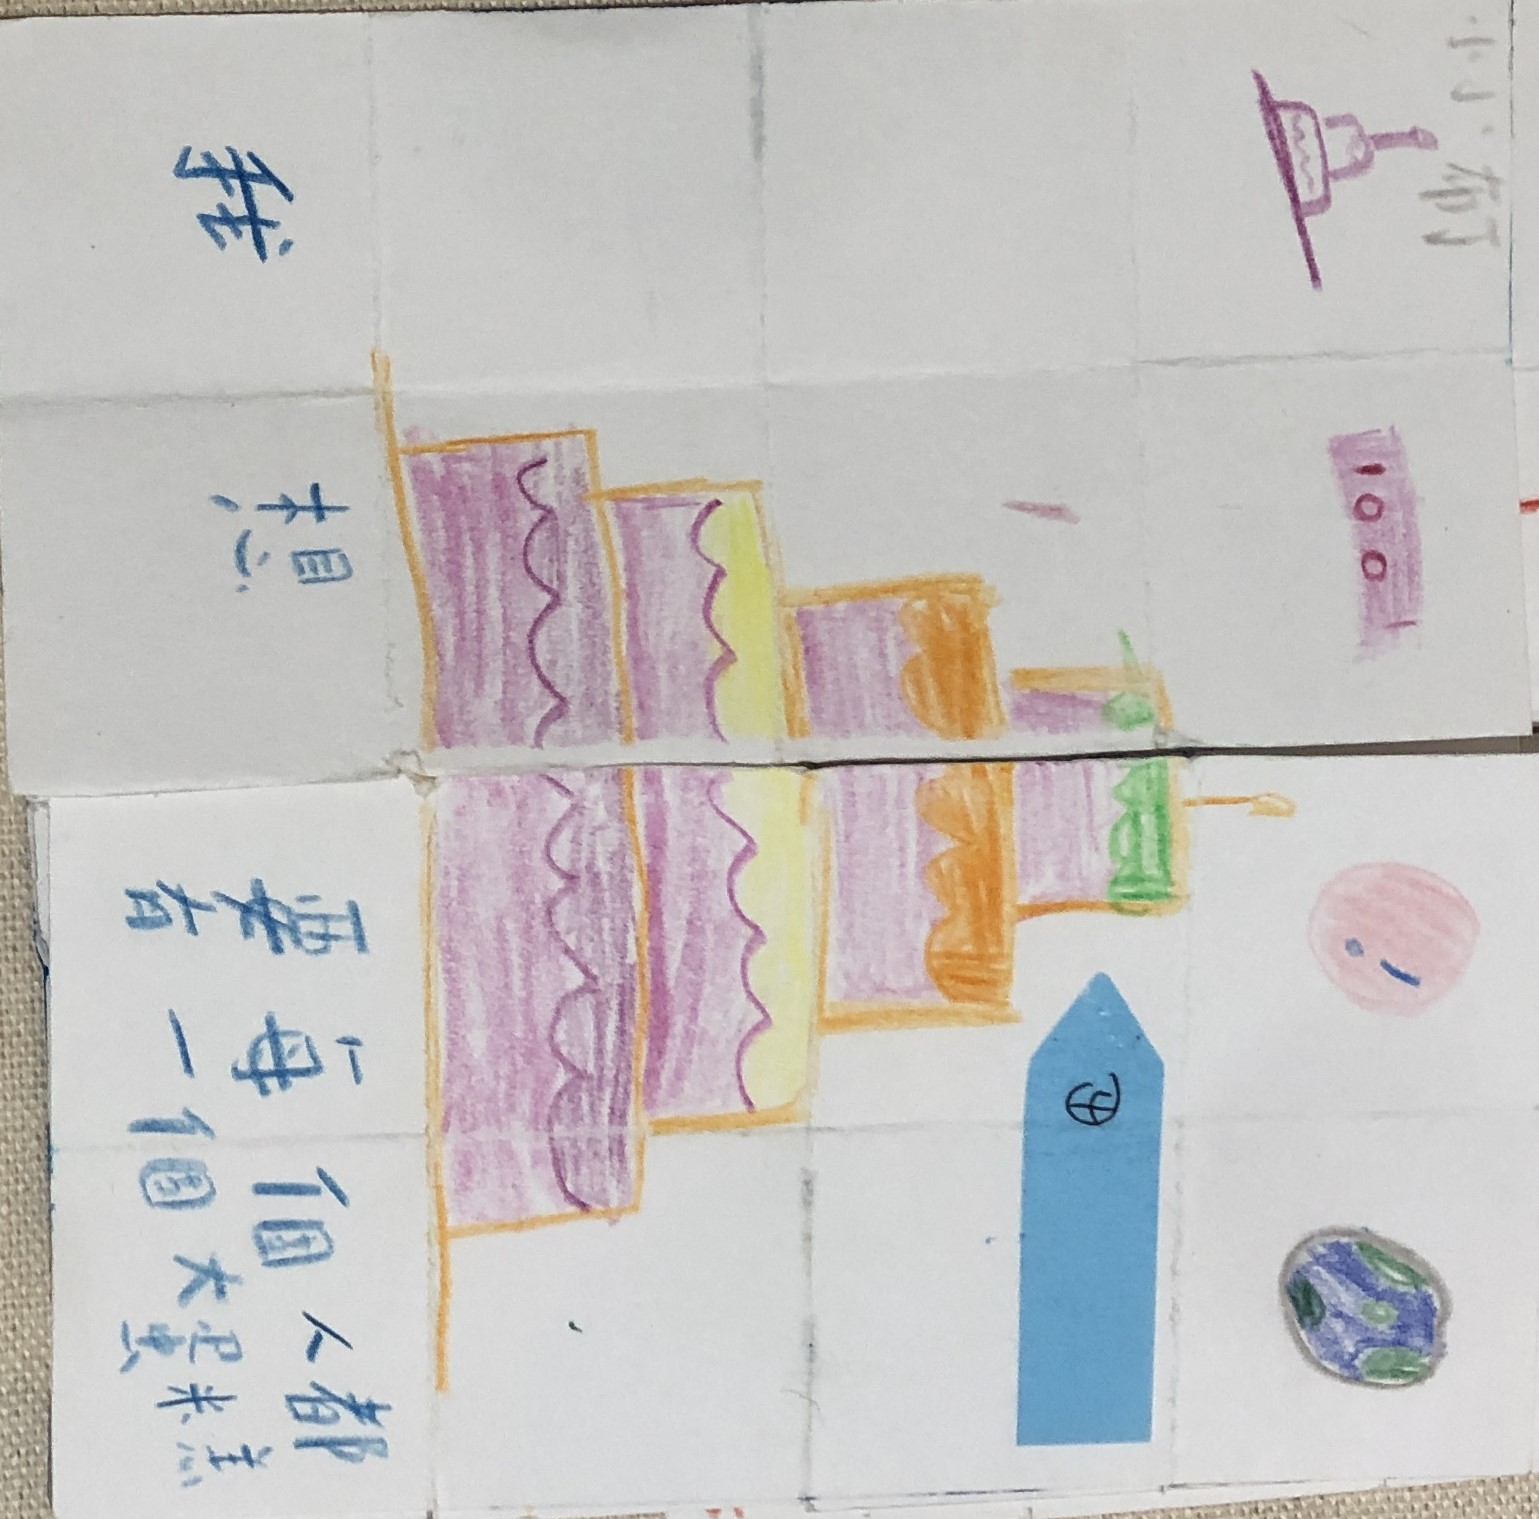 小小布丁
100
!
④
我想要每個人都
有一個大蛋糕